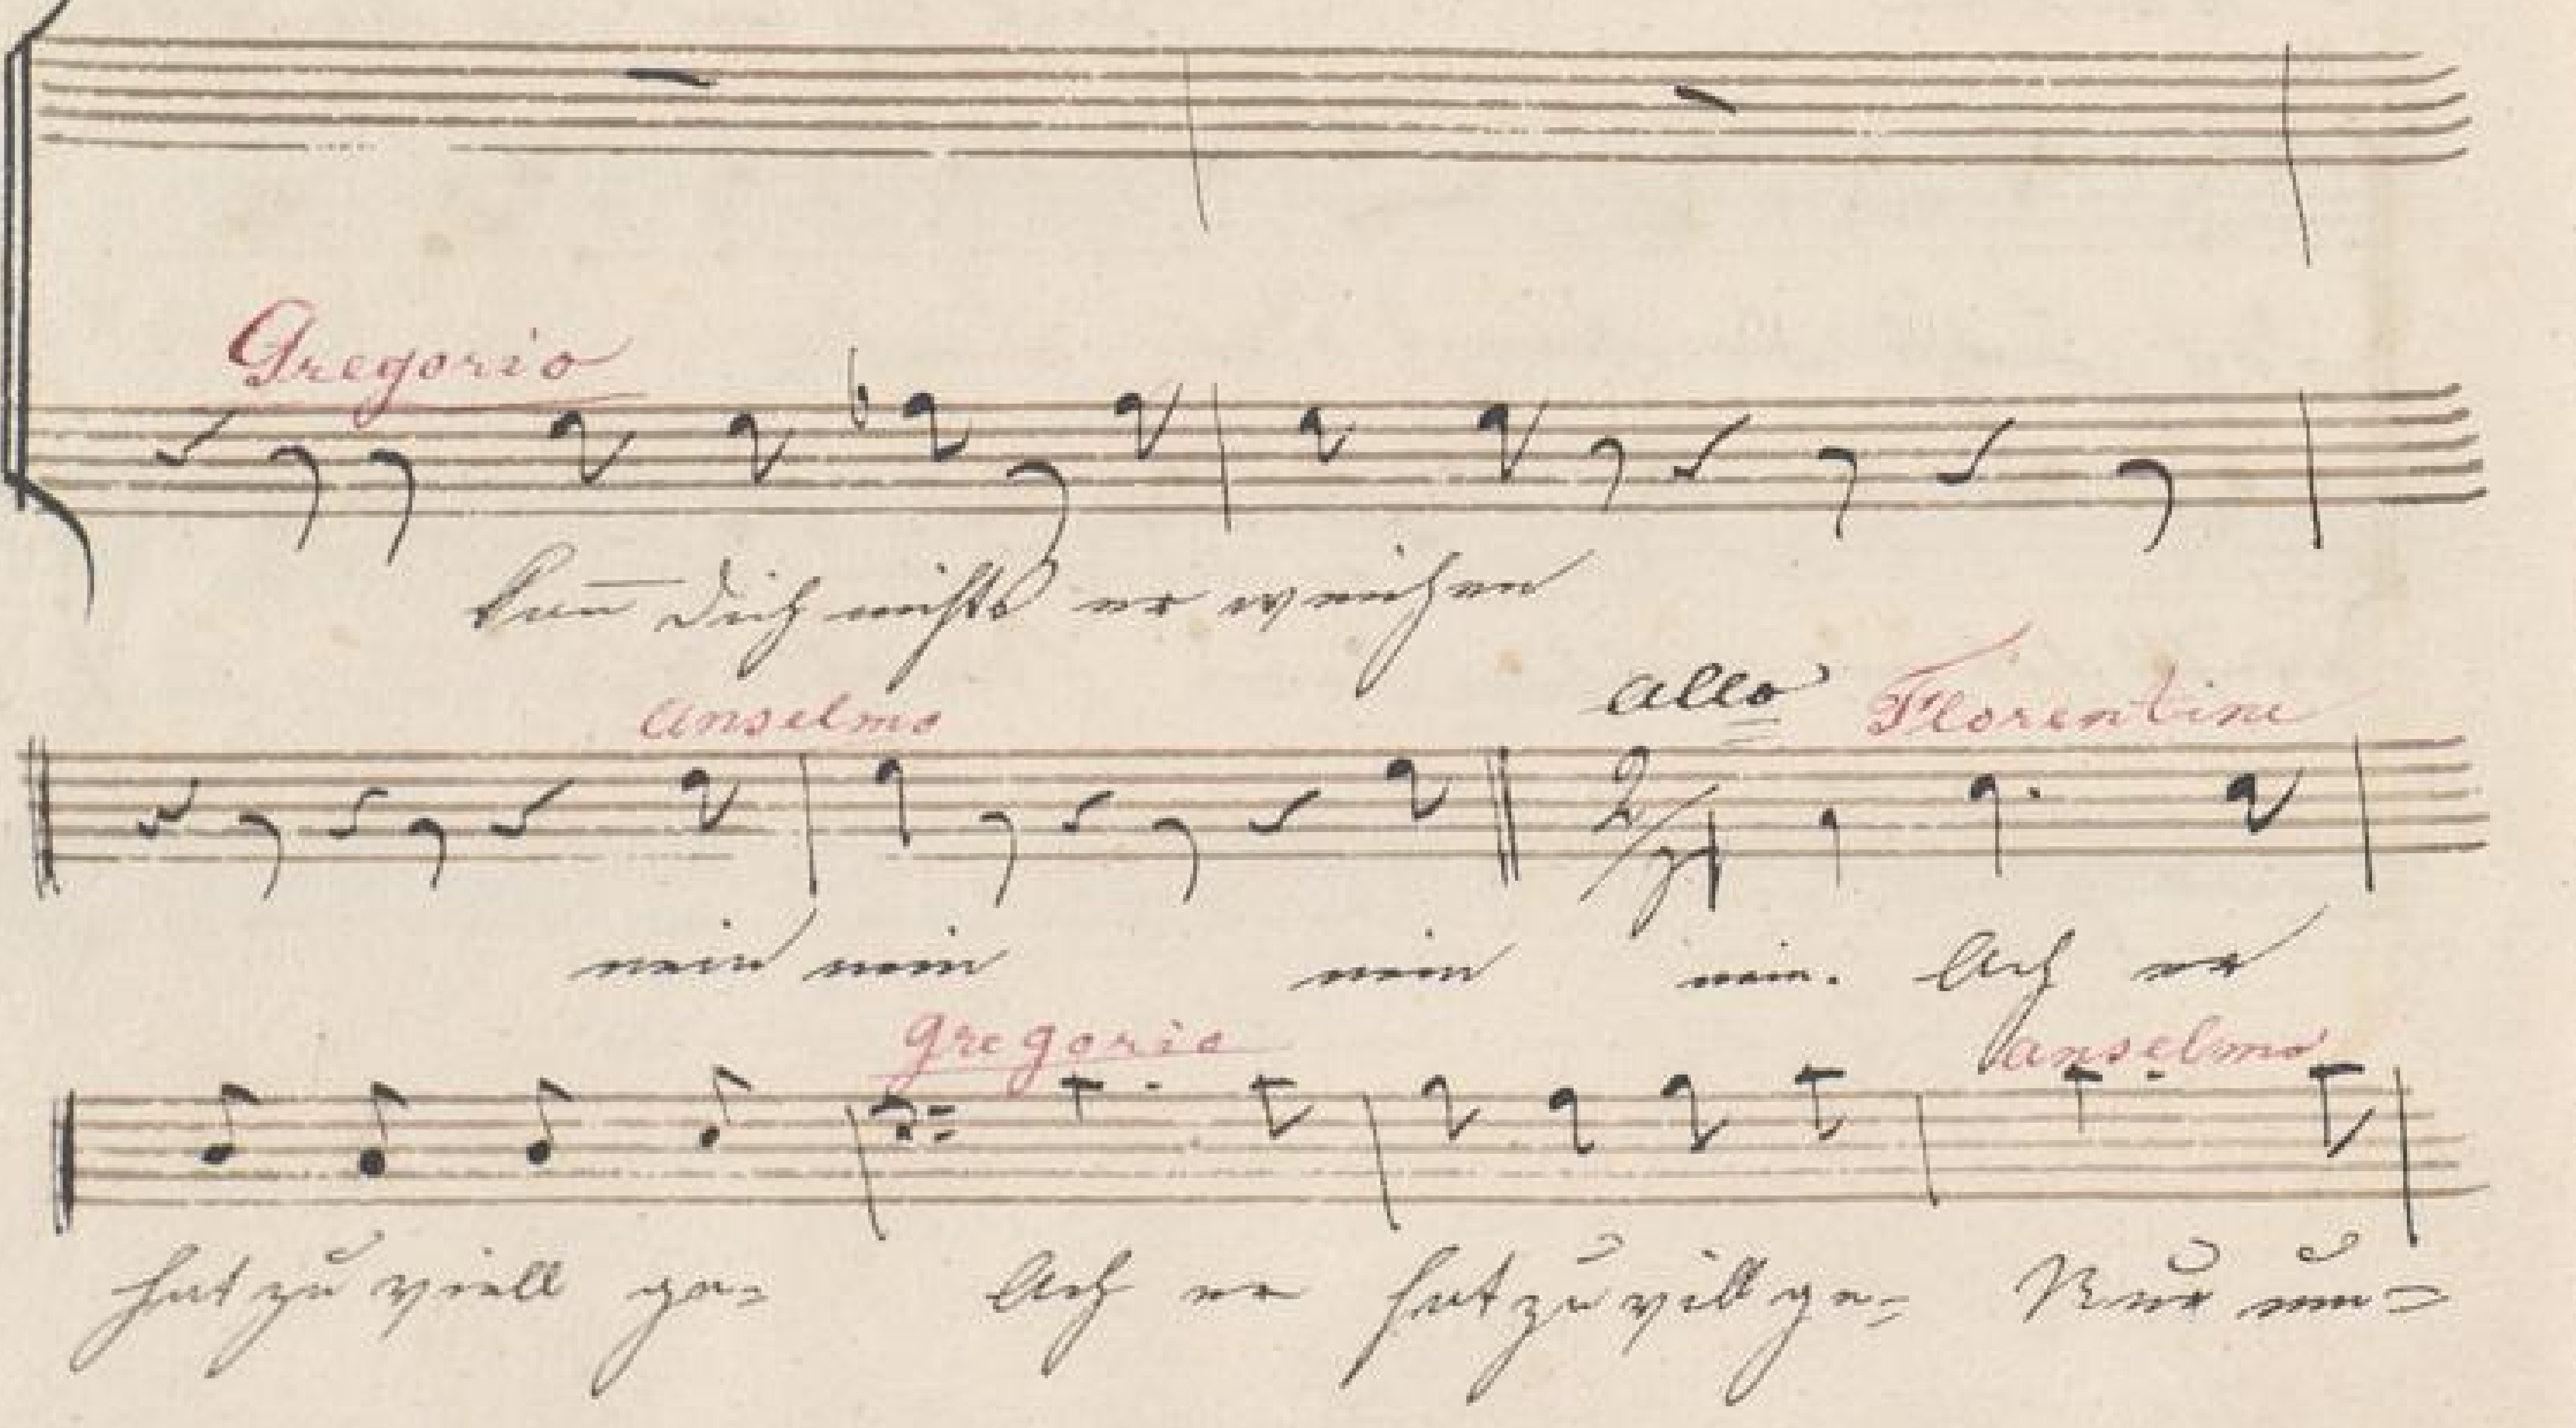 Gregorio
kan̅ dich nichts er weichen
allo Florentine
Anselmo
nein nein nein nein. Ach er
gregorio anselmo
hat zu viell ge- Ach er hat zu vill ge- Nur um-